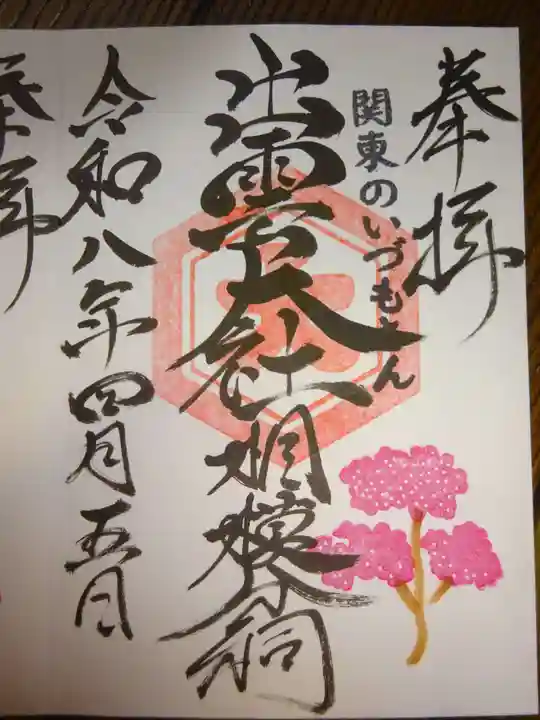 奉拝
関東のいづもさん
出雲大社相模分祠
令和八年四月五日
奉拝